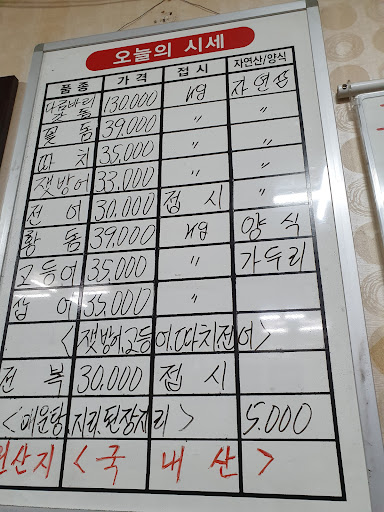 오늘의 시세
품종 가격 접시 자연산/양식
다금바리 130,000 kg 자연산
꽃돔 39,000 〃 〃
따치 35,000 〃 〃
잿방어 33,000 〃 〃
전어 30,000 접시 〃
황돔 39,000 kg 양식
고등어 35,000 〃 가두리
35,000 〃
<잿방어.고등어.따치.전어>
전복 30,000 접시
<매운탕.지리.된장지리> 5.000
원산지 <국내산>